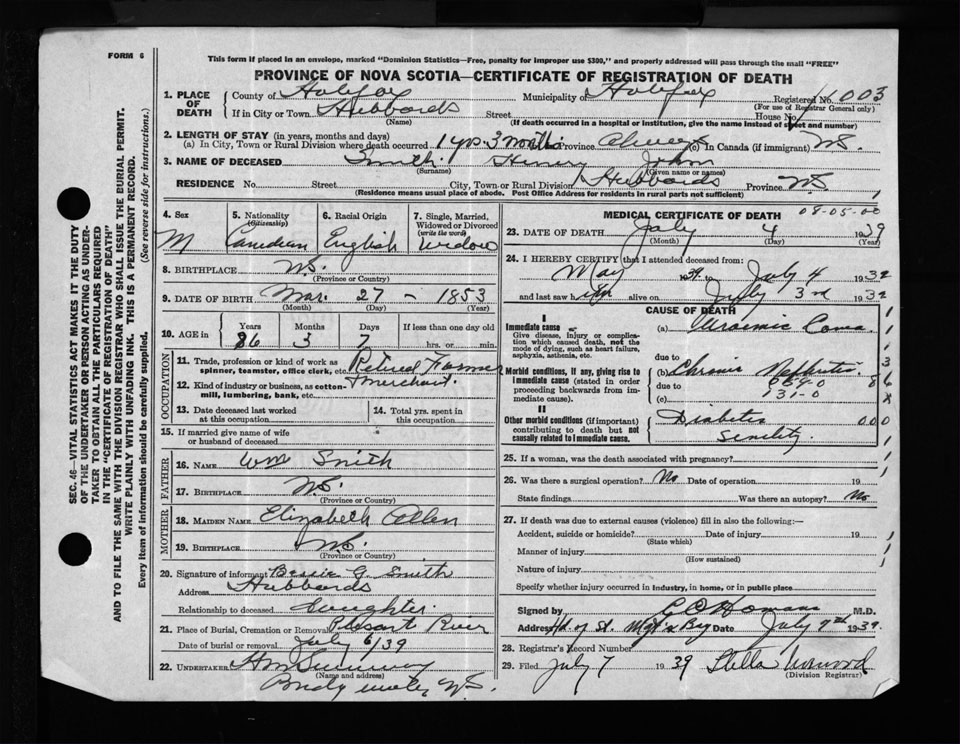 FORM 6
This form if placed in an envelope, marked "Dominion Statistics—Free, penalty for improper use $300," and properly addressed will pass through the mail "FREE"
PROVINCE OF NOVA SCOTIA—CERTIFICATE OF REGISTRATION OF DEATH
SEC. 46—VITAL STATISTICS ACT MAKES IT THE DUTY
OF THE UNDERTAKER OR PERSON ACTING AS UNDER-
TAKER TO OBTAIN ALL THE PARTICULARS REQUIRED
IN THE "CERTIFICATE OF REGISTRATION OF DEATH"
AND TO FILE THE SAME WITH THE DIVISION REGISTRAR WHO SHALL ISSUE THE BURIAL PERMIT.
WRITE PLAINLY WITH UNFADING INK. THIS IS A PERMANENT RECORD.
Every item of information should be carefully supplied. (See reverse side for instructions.)
1. PLACE OF DEATH County of Halifax Municipality of Halifax Registered No. 1003
(For use of Registrar General only)
If in City or Town Hubbards Street House No.
(Name) (If death occurred in a hospital or institution, give the name instead of street and number)
2. LENGTH OF STAY (in years, months and days)
(a) In City, Town or Rural Division where death occurred 1 yrs. 3 months Province Always (c) In Canada (if immigrant) N.S.
3. NAME OF DECEASED Smith Henry John
(Surname) (Given name or names)
RESIDENCE No. Street City, Town or Rural Division Hubbards Province N.S.
(Residence means usual place of abode. Post Office Address for residents in rural parts not sufficient)
1
4. Sex M
5. Nationality (Citizenship) Canadian
6. Racial Origin English
7. Single, Married, Widowed or Divorced (write the word) Widow
8. BIRTHPLACE N.S.
(Province or Country)
9. DATE OF BIRTH Mar. 27 - 1853
(Month) (Day) (Year)
10. AGE in Years Months Days If less than one day
86 3 7 hrs. or min.
OCCUPATION
11. Trade, profession or kind of work as spinner, teamster, office clerk, etc. Retired Farmer
12. Kind of industry or business, as cotton-mill, lumbering, bank, etc. merchant.
13. Date deceased last worked at this occupation
14. Total yrs. spent in this occupation
15. If married give name of wife or husband of deceased
FATHER
16. NAME Wm Smith
17. BIRTHPLACE N.S.
(Province or Country)
MOTHER
18. MAIDEN NAME Elizabeth Allen
19. BIRTHPLACE N.S.
(Province or Country)
20. Signature of informant Bessie G. Smith
Address Hubbards
Relationship to deceased daughter.
21. Place of Burial, Cremation or Removal Pleasant River
Date of burial or removal July 6/39
22. UNDERTAKER
(Name and address)
Bridgewater N.S.
MEDICAL CERTIFICATE OF DEATH
08-05-00
23. DATE OF DEATH July 4 1939
(Month) (Day) (Year)
24. I HEREBY CERTIFY that I attended deceased from:
May 1939 to July 4 1939
and last saw him alive on July 3rd 1939
CAUSE OF DEATH
I
Immediate cause
Give disease, injury or complication which caused death, not the mode of dying, such as heart failure, asphyxia, asthenia, etc.
(a) Uraemic Coma
due to
Morbid conditions, if any, giving rise to immediate cause (stated in order proceeding backwards from immediate cause).
(b) Chronic Nephritis
due to 059-0
131-0
(c)
II
Other morbid conditions (if important) contributing to death but not causally related to immediate cause.
Diabetes
Senility.
3
86
x
000
25. If a woman, was the death associated with pregnancy?
26. Was there a surgical operation? No Date of operation 19
State findings Was there an autopsy? No
27. If death was due to external causes (violence) fill in also the following:—
Accident, suicide or homicide? Date of injury 19
(State which)
Manner of injury
(How sustained)
Nature of injury
Specify whether injury occurred in industry, in home, or in public place
Signed by M.D.
Address Hd. of St. Mgt's Bay Date July 7th 1939.
28. Registrar's Record Number
29. Filed July 7 1939 Stella
(Division Registrar)